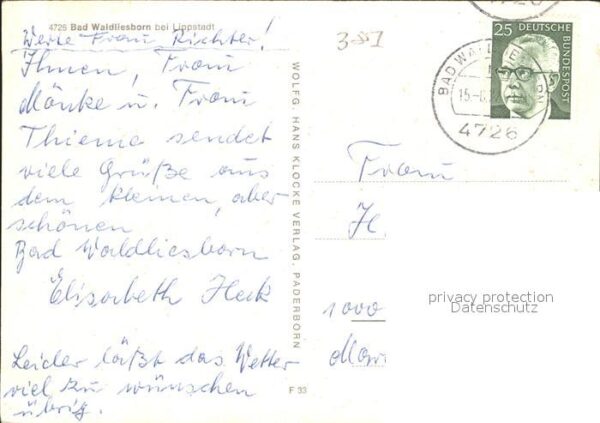 4726 Bad Waldliesborn bei Lippstadt
Werte Frau Richter!
Ihnen, Frau
Mönke u. Frau
Thieme sendet
viele Grüße aus
dem kleinen, aber
schönen
Bad Waldliesborn
Elisabeth Heck
Leider läßt das Wetter
viel zu wünschen
übrig.
WOLFG. HANS KLOCKE VERLAG, PADERBORN
F 33
25 DEUTSCHE BUNDESPOST
4726
Frau
H
1000
privacy protection
Datenschutz
Mar